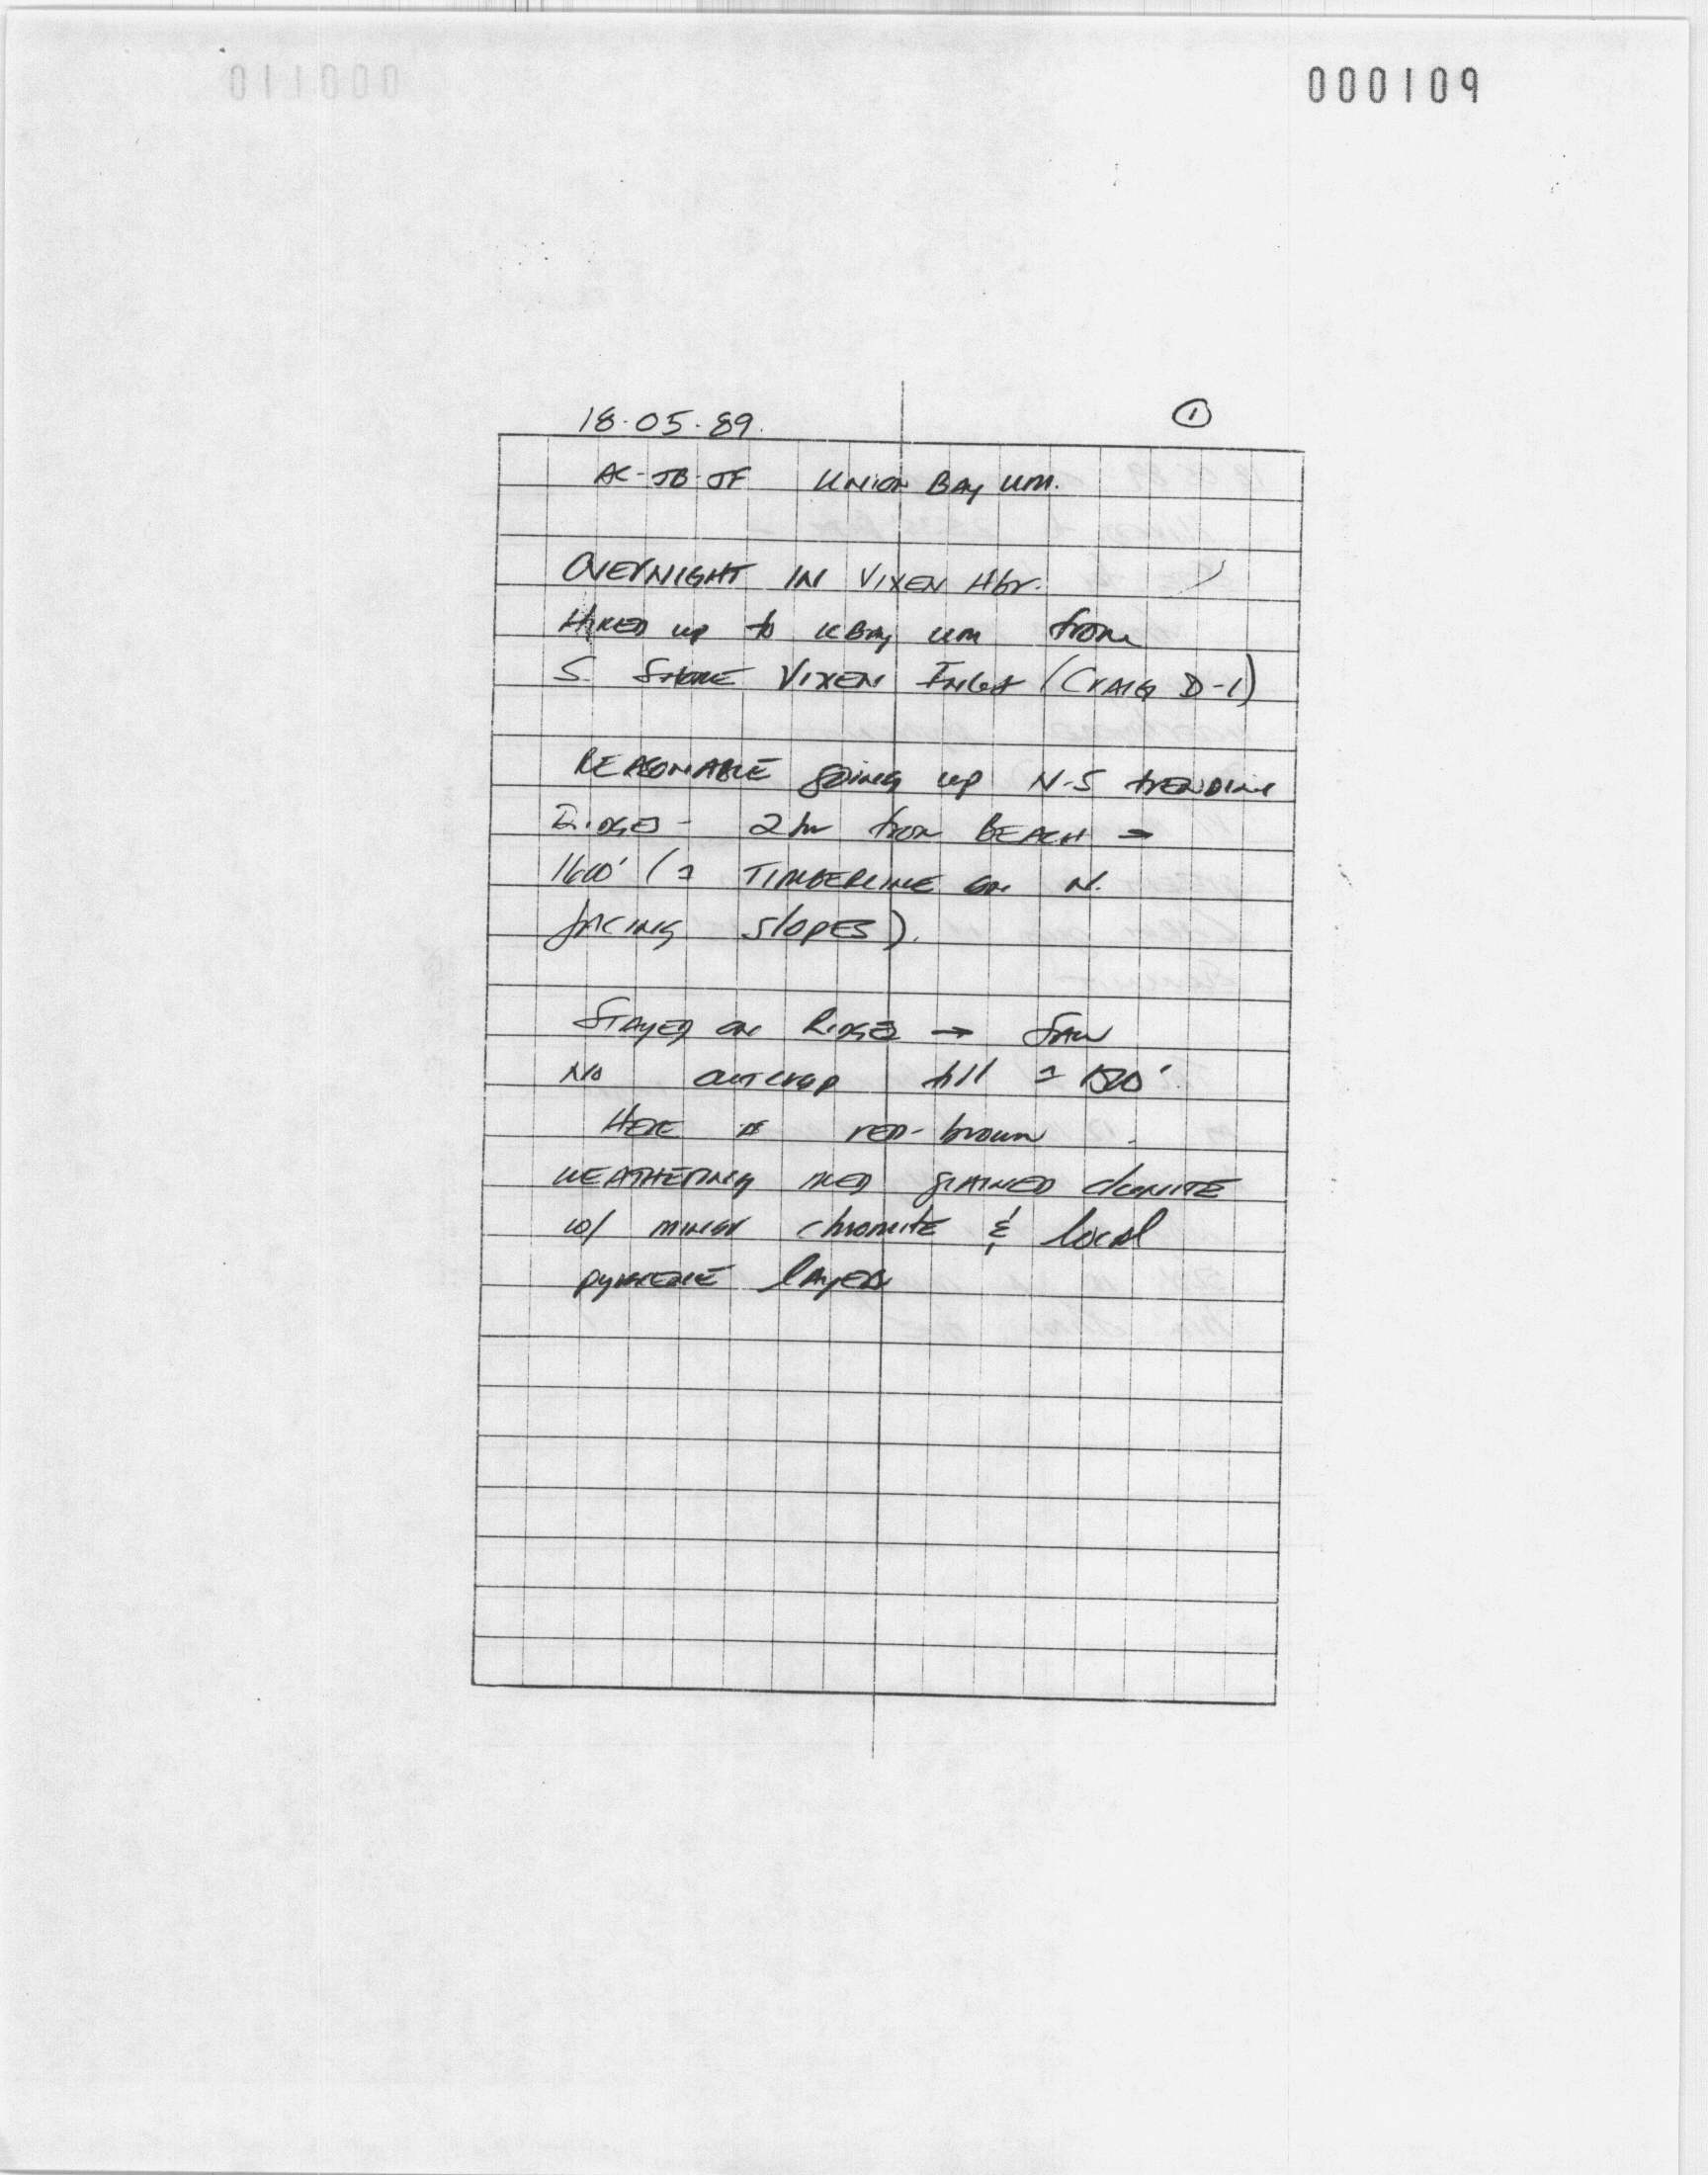 000109
18.05.89.
①
AC-JB-JF UNION BAY UM.
OVERNIGHT IN VIXEN Hbr.
HIKED up to UBay UM from
S. SHORE VIXEN Inlet (CRAIG D-1)
REASONABLE going up N-S TRENDING
RIDGES - 2hr from BEACH →
1600' (≈ TIMBERLINE ON N.
facing slopes).
STAYED on RIDGE → SAW
No outcrop till ≈
HERE red-brown
WEATHERING MED GRAINED dunite
w/ minor chromite & local
pyroxene layers